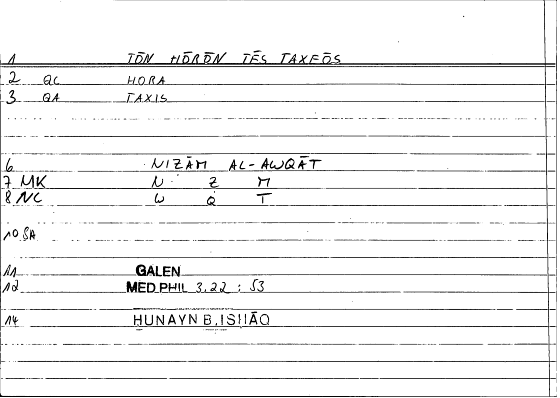 1 TŌN HŌRŌN TĒS TAXEŌS
2 QC HORA
3 QA TAXIS
6 NIZĀM AL-AWQĀT
7 MK N Z M
8 NC W Q T
10 SA
11 GALEN
12 MED PHIL 3.22 : 53
14 HUNAYN B. ISHĀQ